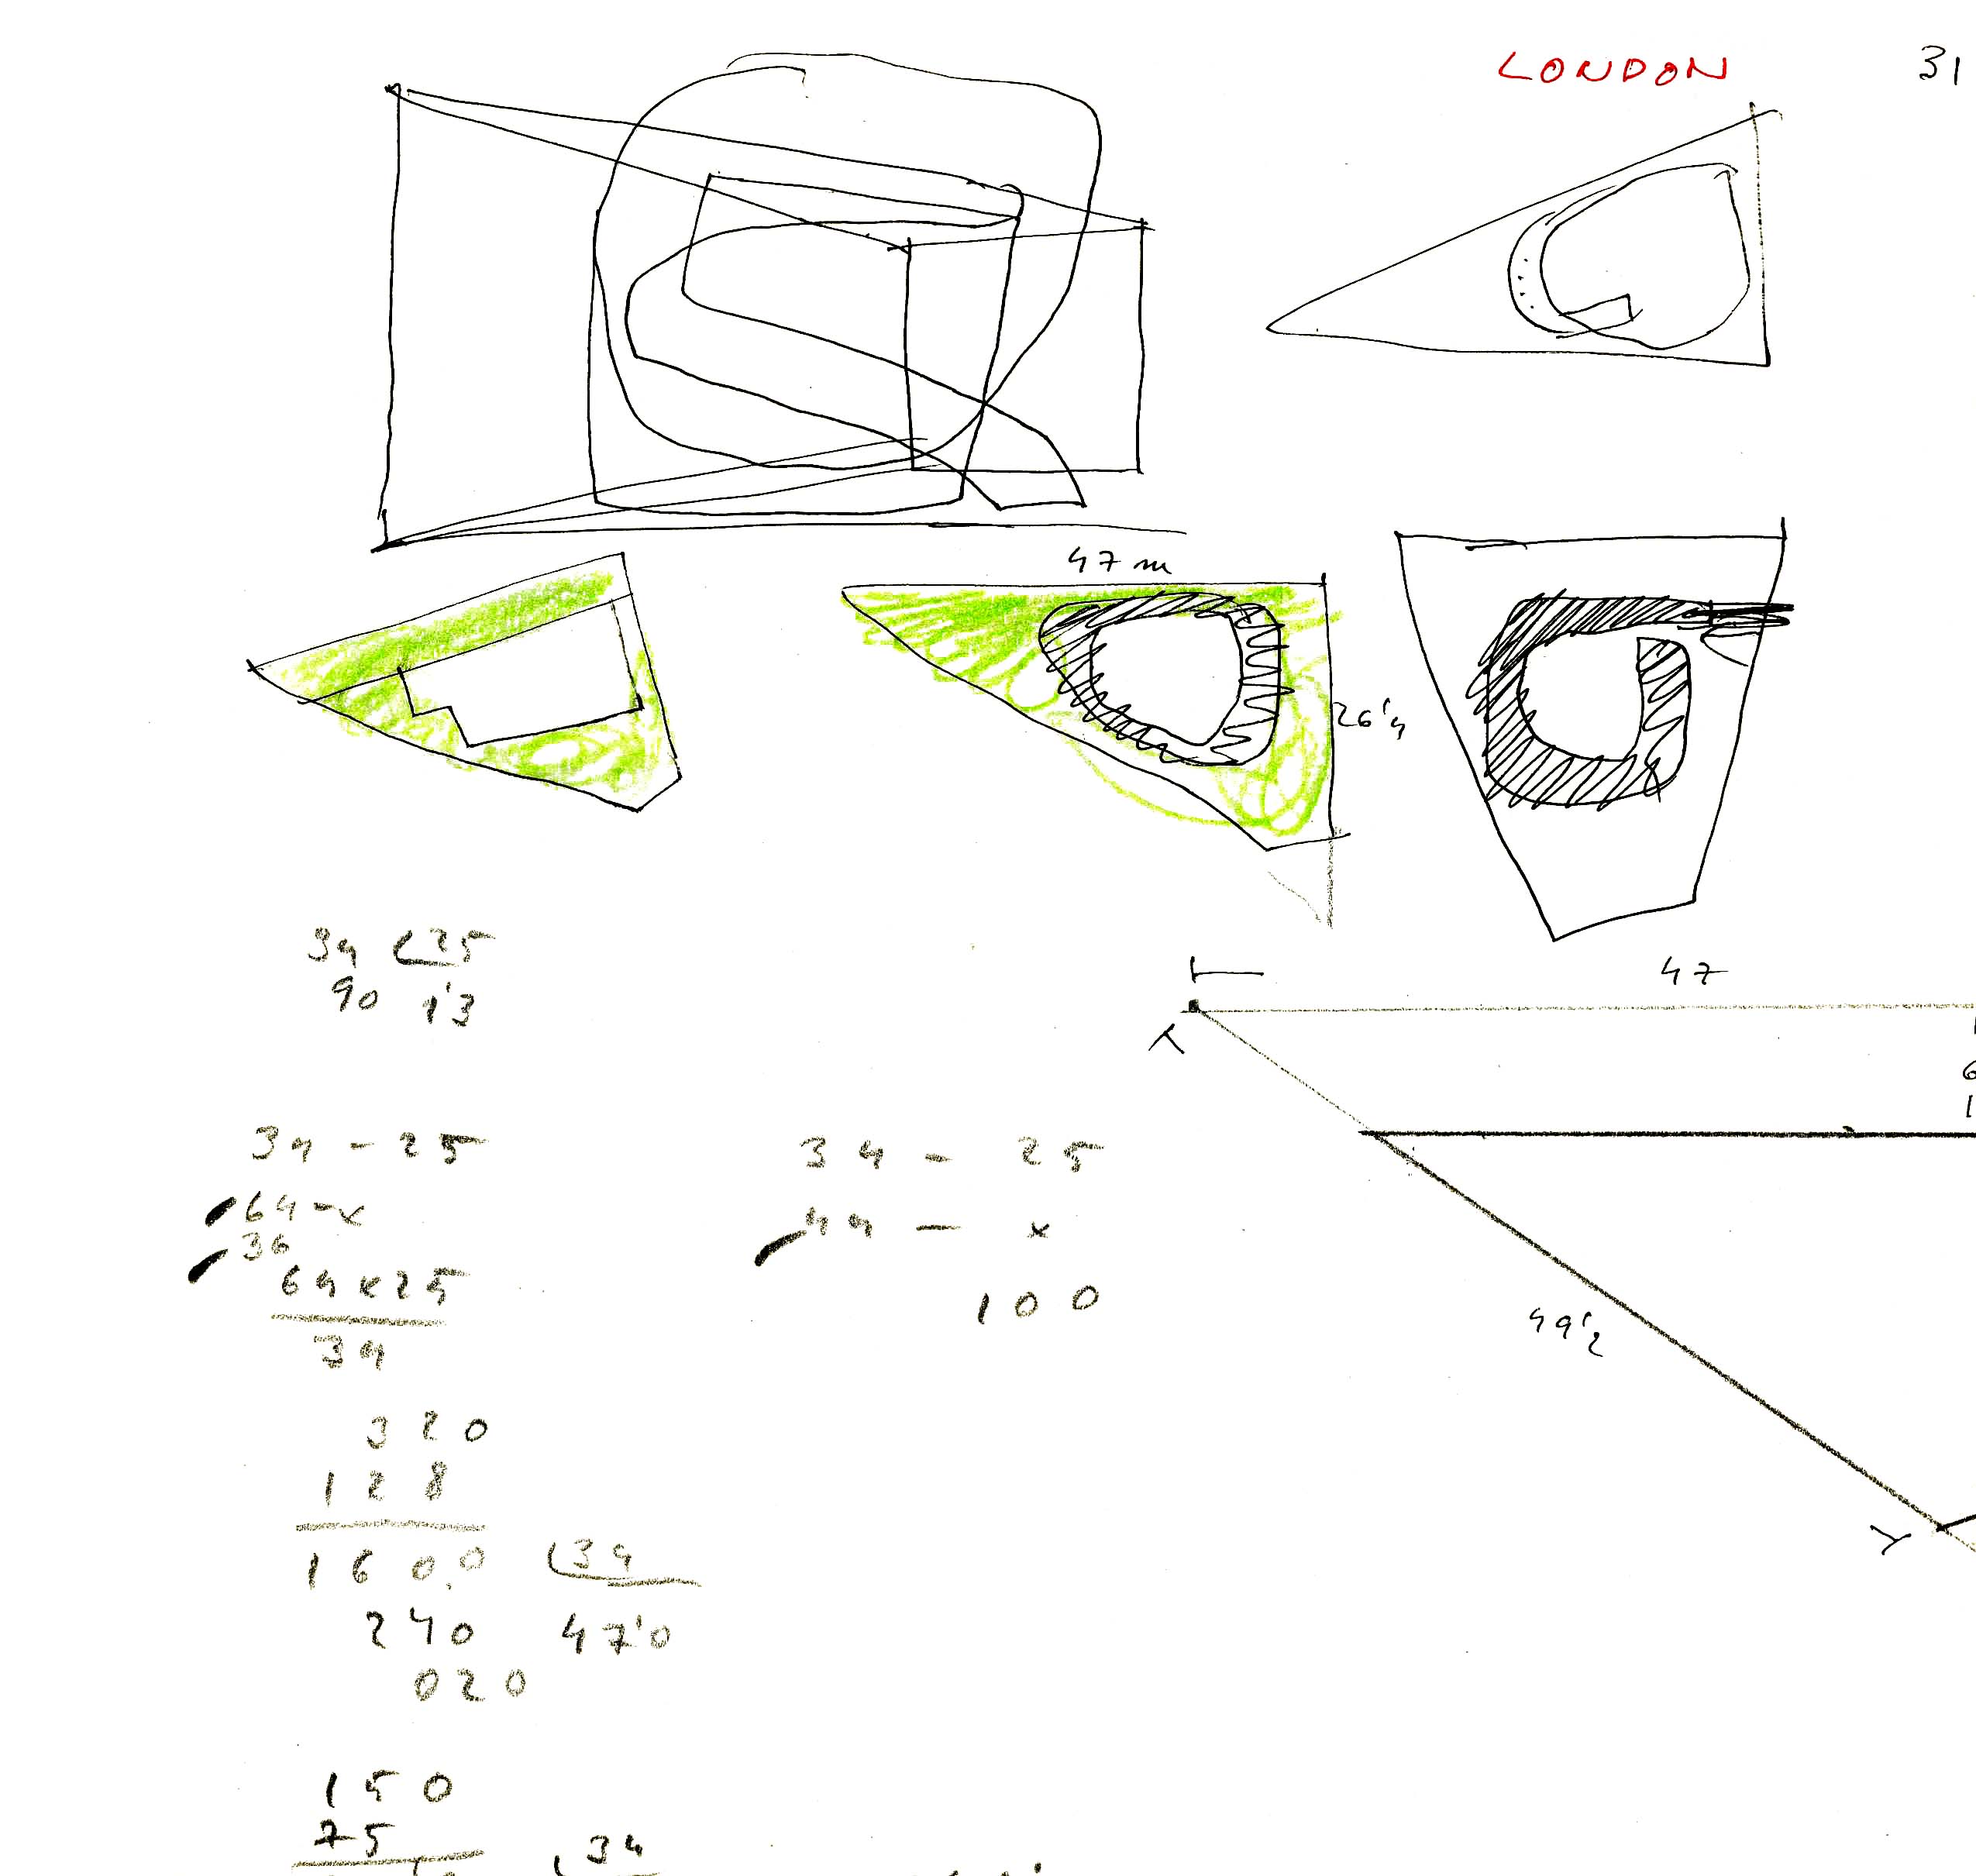 LONDON 31
47 m
26'4
34 25
90 1'3
47
34 - 25
64 - x
36
64 x 25
34
34 - 25
44 - x
100
49'2
320
128
1600 34
240 47'0
020
X
Y
150
75
34